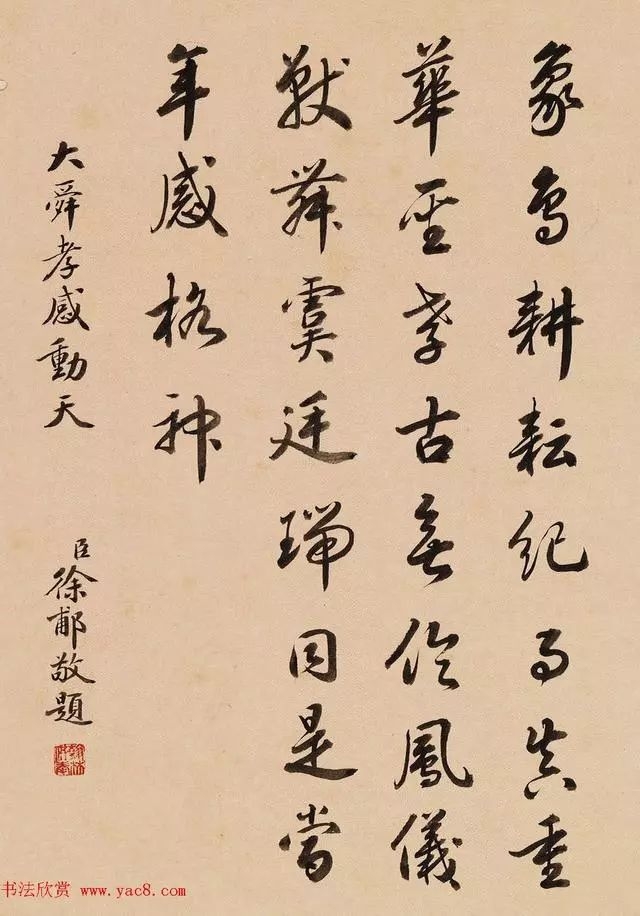 象鳥耕耘紀事真重
華聖孝古無倫鳳儀
獸舞虞廷瑞同是當
年感格神
大舜孝感動天
臣徐郙敬題
书法欣赏 www.yac8.com